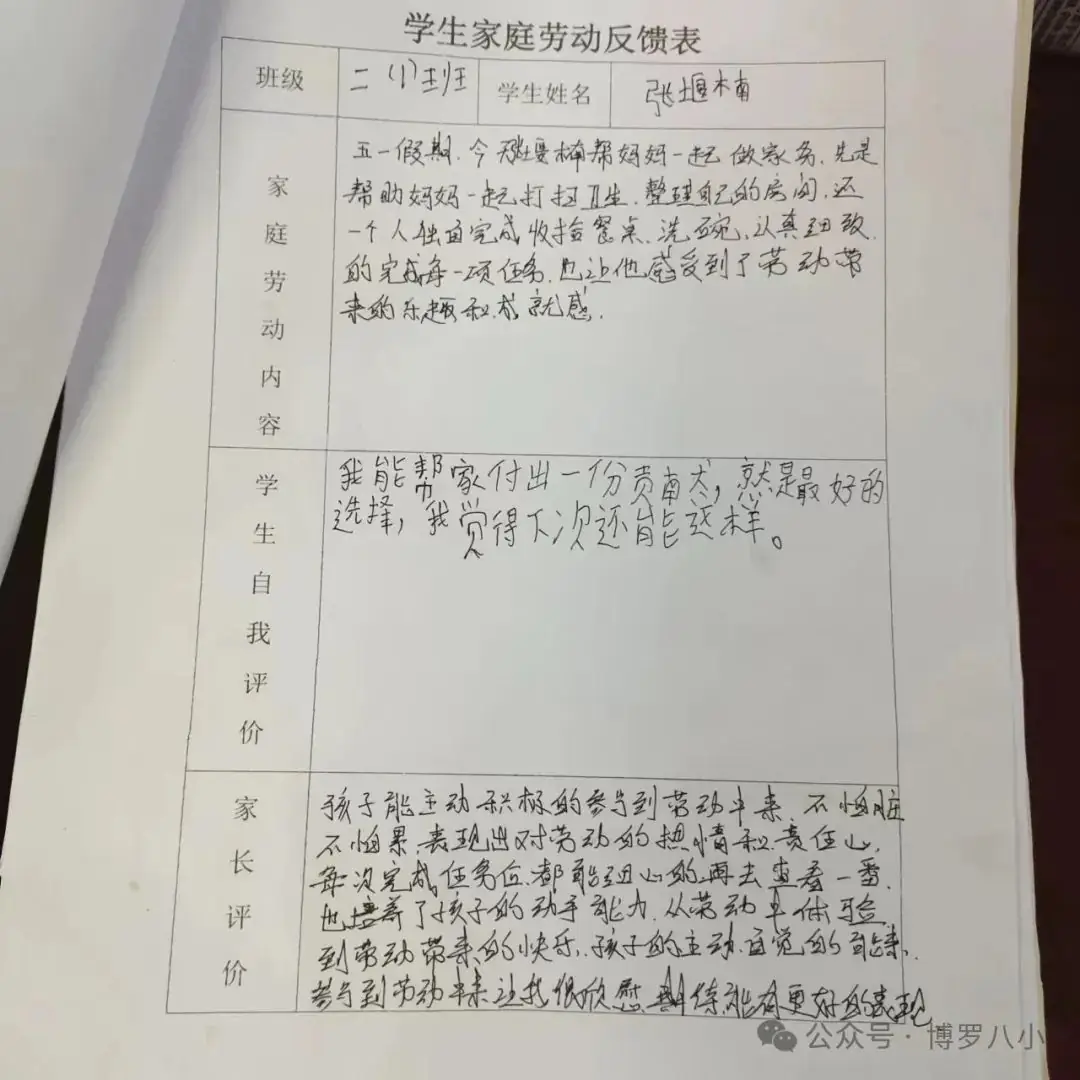 学生家庭劳动反馈表
班级 二(1)班 学生姓名 张堰楠
家庭劳动内容
五一假期.今天张堰楠帮妈妈一起做家务.先是
帮助妈妈一起打扫卫生.整理自己的房间.还
一个人独自完成收拾餐桌.洗碗.认真细致.
的完成每一项任务.也让他感受到了劳动带
来的乐趣和成就感.
学生自我评价
我能帮家付出一份贡献,就是最好的
选择,我觉得下次还能这样。
家长评价
孩子能主动积极的参与到劳动中来.不怕脏
不怕累.表现出对劳动的热情和责任心.
每次完成任务后.都能细心的再去查看一番.
也培养了孩子的动手能力.从劳动中体验
到劳动带来的快乐.孩子的主动.自觉的能来.
参与到劳动中来让我很欣慰 期待能有更好的表现
公众号·博罗八小